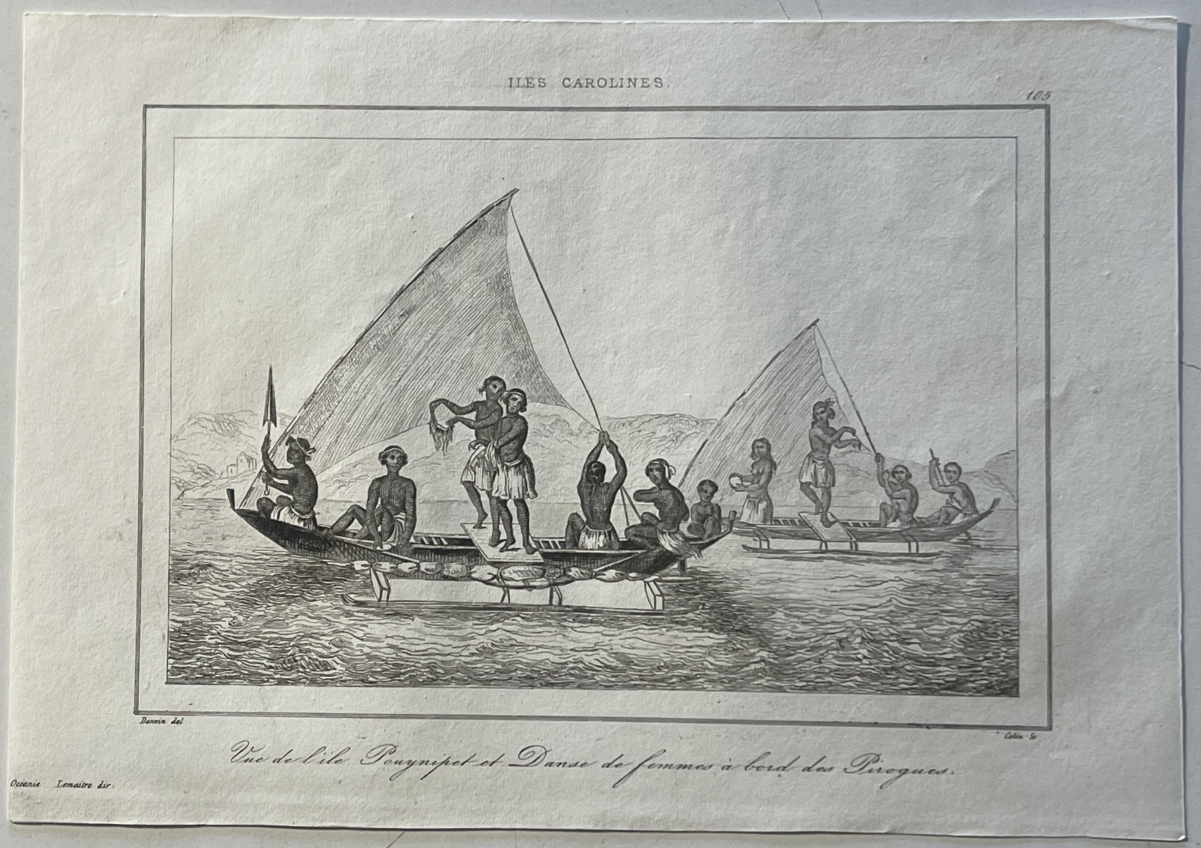 ILES CAROLINES.
105
Danvin del
Colin Sc
Vue de l'ile Pouynipet et Danse de femmes à bord des Pirogues.
Océanie Lemaitre dir.